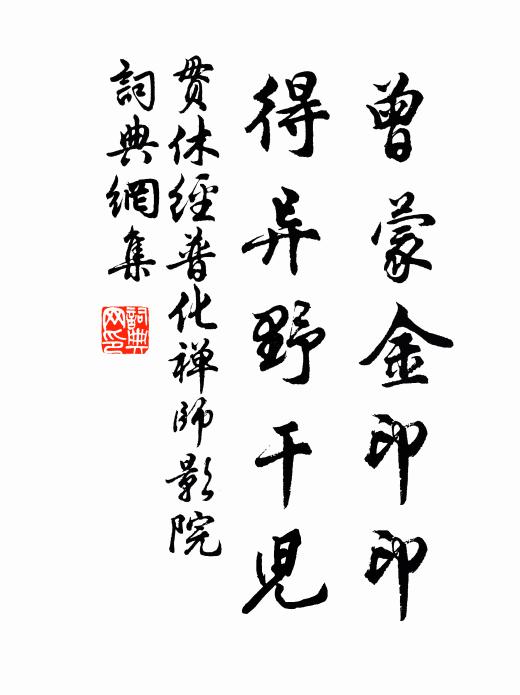 曾蒙金印印
得异野干兒
贯休經普化禅師影院
詞典網集
詞典网印